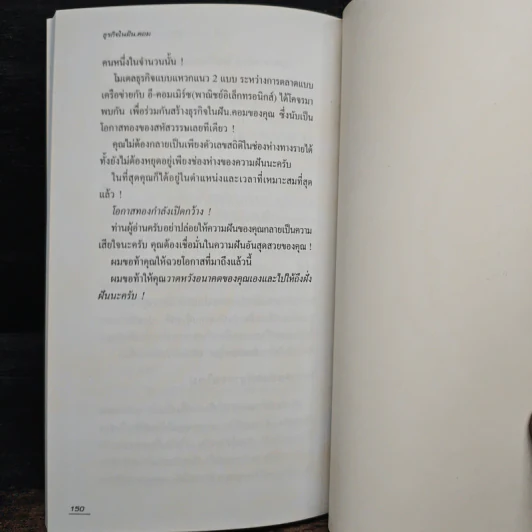 ธุรกิจในฝัน.คอม
คนหนึ่งในจำนวนนั้น !
โมเดลธุรกิจแบบแหวกแนว 2 แบบ ระหว่างการตลาดแบบ
เครือข่ายกับ อี-คอมเมิร์ซ(พาณิชย์อิเล็กทรอนิกส์) ได้โคจรมา
พบกัน เพื่อร่วมกันสร้างธุรกิจในฝัน.คอมของคุณ ซึ่งนับเป็น
โอกาสทองของสหัสวรรษเลยทีเดียว !
คุณไม่ต้องกลายเป็นเพียงตัวเลขสถิติในช่องห่างทางรายได้
ทั้งยังไม่ต้องหยุดอยู่เพียงช่องห่างของความฝันนะครับ
ในที่สุดคุณก็ได้อยู่ในตำแหน่งและเวลาที่เหมาะสมที่สุด
แล้ว !
โอกาสทองกำลังเปิดกว้าง !
ท่านผู้อ่านครับอย่าปล่อยให้ความฝันของคุณกลายเป็นความ
เสียใจนะครับ คุณต้องเชื่อมั่นในความฝันอันสุดสวยของคุณ !
ผมขอท้าคุณให้ฉวยโอกาสที่มาถึงแล้วนี้
ผมขอท้าให้คุณวาดหวังอนาคตของคุณเองและไปให้ถึงฝั่ง
ฝันนะครับ !
150